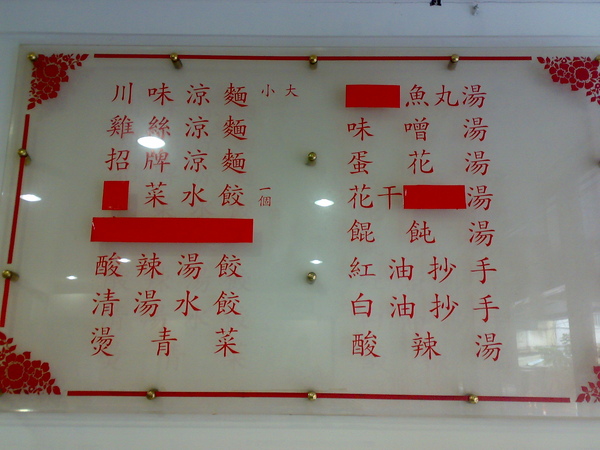 川味涼麵 小 大
雞絲涼麵
招牌涼麵
菜水餃 一個
酸辣湯餃
清湯水餃
燙青菜
魚丸湯
味噌湯
蛋花湯
花干湯
餛飩湯
紅油抄手
白油抄手
酸辣湯